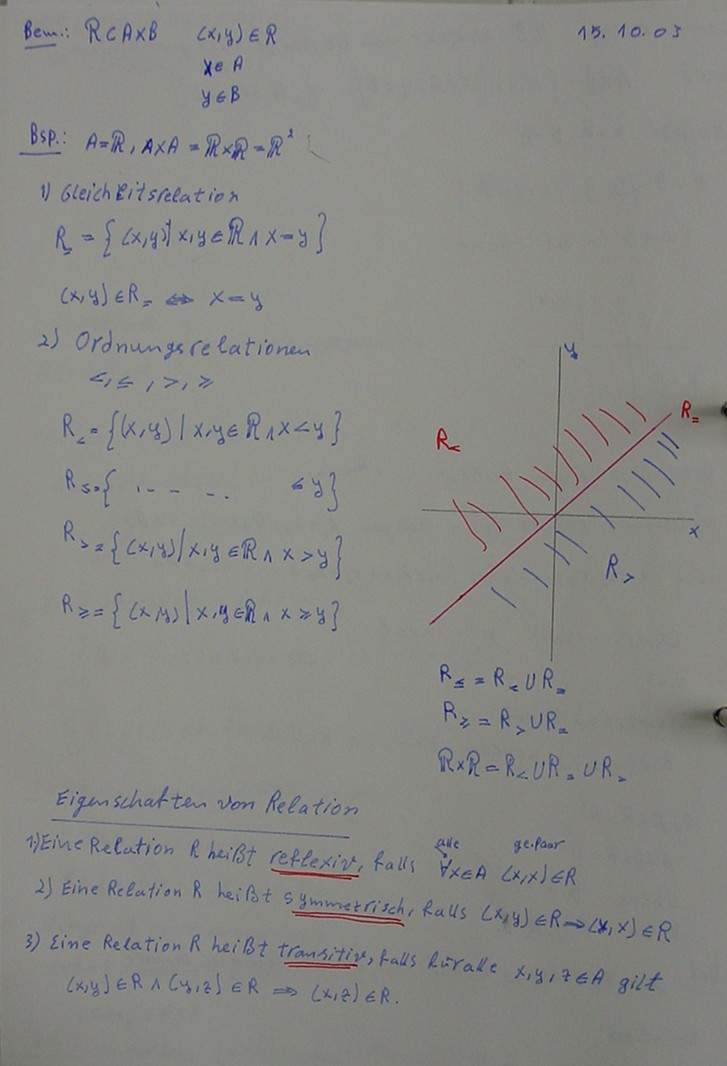 Bem.: R⊂A×B (x,y)∈R 15.10.03
x∈A
y∈B
Bsp.: A=ℝ, A×A = ℝ×ℝ=ℝ²
1) Gleichheitsrelation
R₌ = {(x,y)| x,y∈ℝ ∧ x=y}
(x,y)∈R₌ ⇔ x=y
2) Ordnungsrelationen
<, ≤, >, ≥
R< = {(x,y) | x,y∈ℝ ∧ x<y}
R≤ = { . – – – . ≤ y}
R> = {(x,y) | x,y∈ℝ ∧ x>y}
R≥ = {(x,y) | x,y∈ℝ ∧ x≥y}
y
R<
R₌
x
R>
R≤ = R< ∪ R₌
R≥ = R> ∪ R₌
ℝ×ℝ = R< ∪ R₌ ∪ R>
Eigenschaften von Relation
alle ge.Paar
1) Eine Relation R heißt reflexiv, falls ∀x∈A (x,x)∈R
2) Eine Relation R heißt symmetrisch, falls (x,y)∈R ⇒ (y,x)∈R
3) Eine Relation R heißt transitiv, falls für alle x,y,z∈A gilt
(x,y)∈R ∧ (y,z)∈R ⇒ (x,z)∈R.